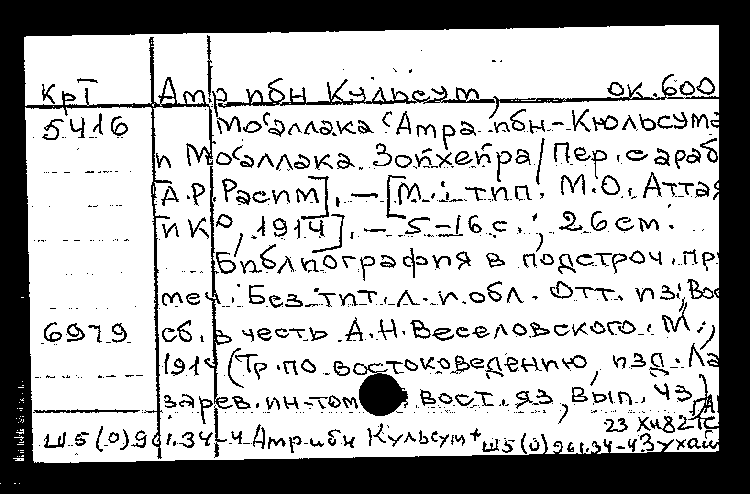 КрТ Амр ибн Кульсум, ок.600
5416 Мо‘аллака ‘Амра ибн-Кюльсума
и Мо‘аллака Зохейра/Пер. с араб
[А.Р.Распи], – [М.: тип. М.О. Аттая
и К°, 1914], – 5-16 с.; 26 см.
Библиография в подстроч. при
меч. Без тит. л. и обл. Отт. из: Вос
6979 сб. в честь А.Н.Веселовского. М.,
1914 (Тр. по востоковедению, изд. Ла
зарев. ин-том вост. яз, вып. 43)
23 82
Ш5(0)961.34-4 Амр ибн Кульсум + Ш5(0)961.34-4 Зухай